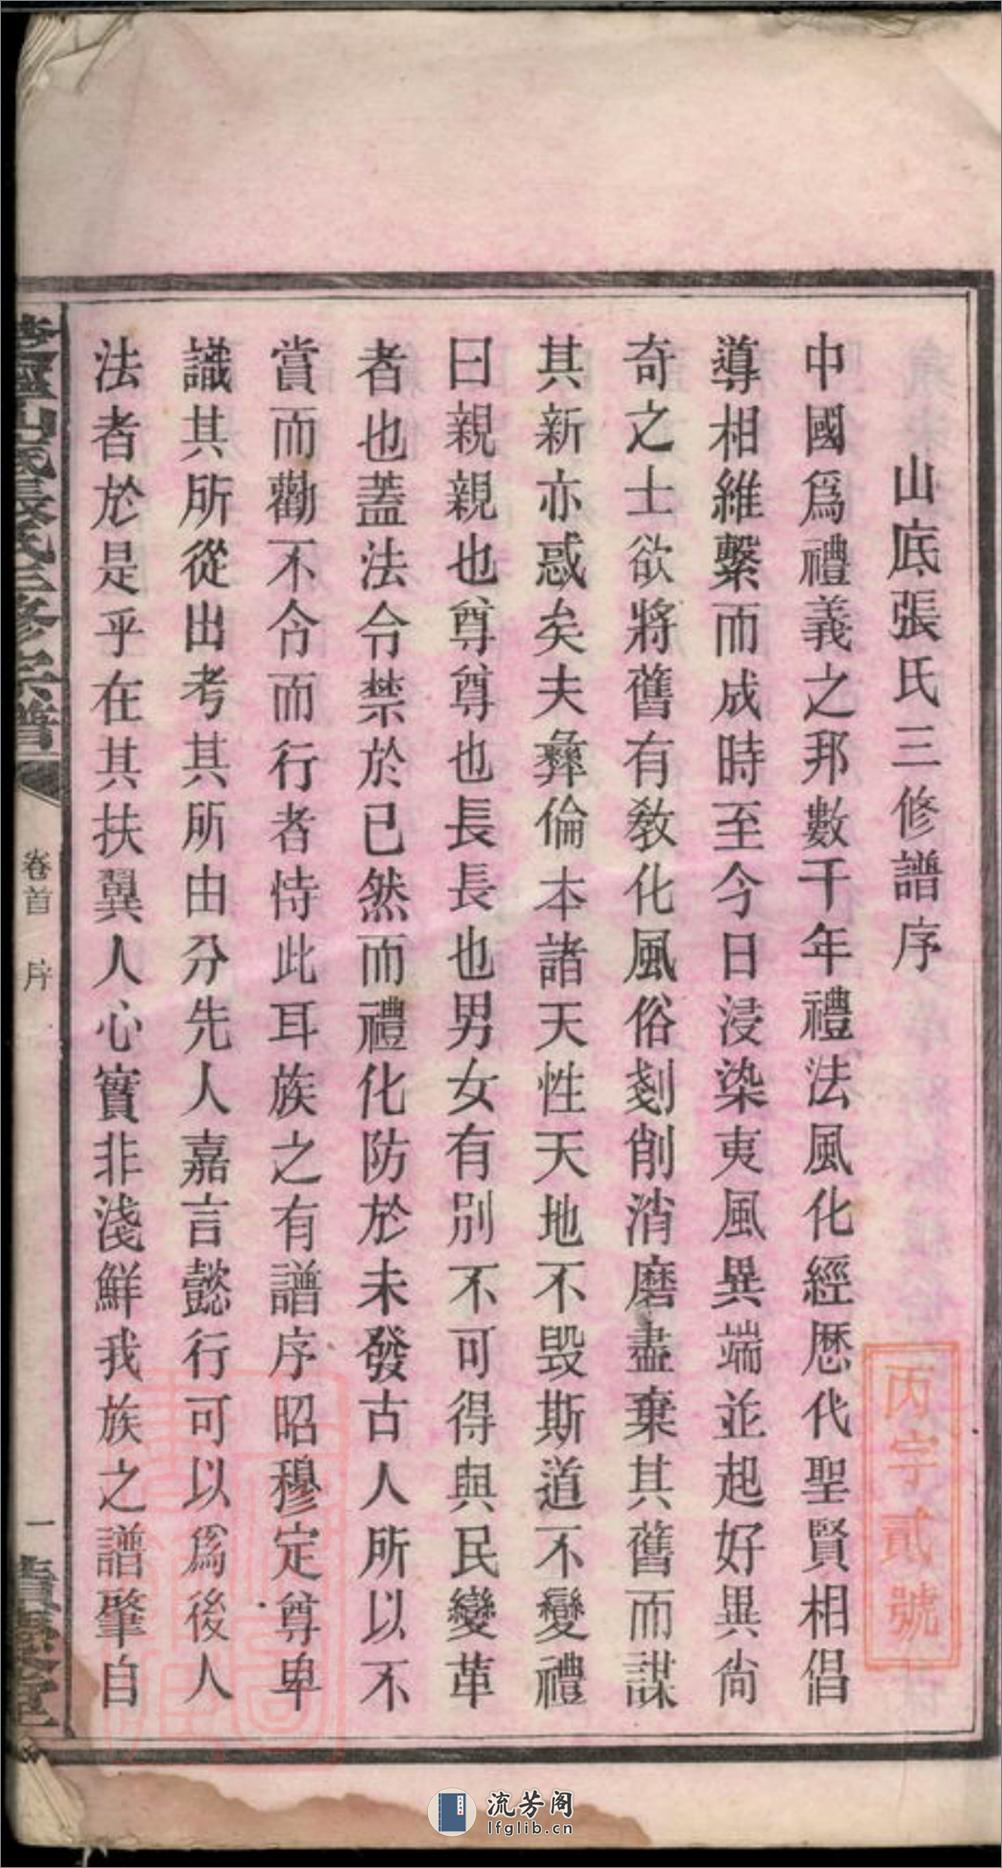 山底張氏三修譜序
中國爲禮義之邦數千年禮法風化經歷代聖賢相倡
導相維繫而成時至今日浸染夷風異端並起好異尙
奇之士欲將舊有敎化風俗剗削消磨盡棄其舊而謀
其新亦惑矣夫彝倫本諸天性天地不毀斯道不變禮
曰親親也尊尊也長長也男女有別不可得與民變革
者也蓋法令禁於已然而禮化防於未發古人所以不
賞而勸不令而行者恃此耳族之有譜序昭穆定尊卑
識其所從出考其所由分先人嘉言懿行可以爲後人
法者於是乎在其扶翼人心實非淺鮮我族之譜肇自
山底張氏三修宗譜
卷首 序
一
丙字貳號
流芳阁
lfglib.cn